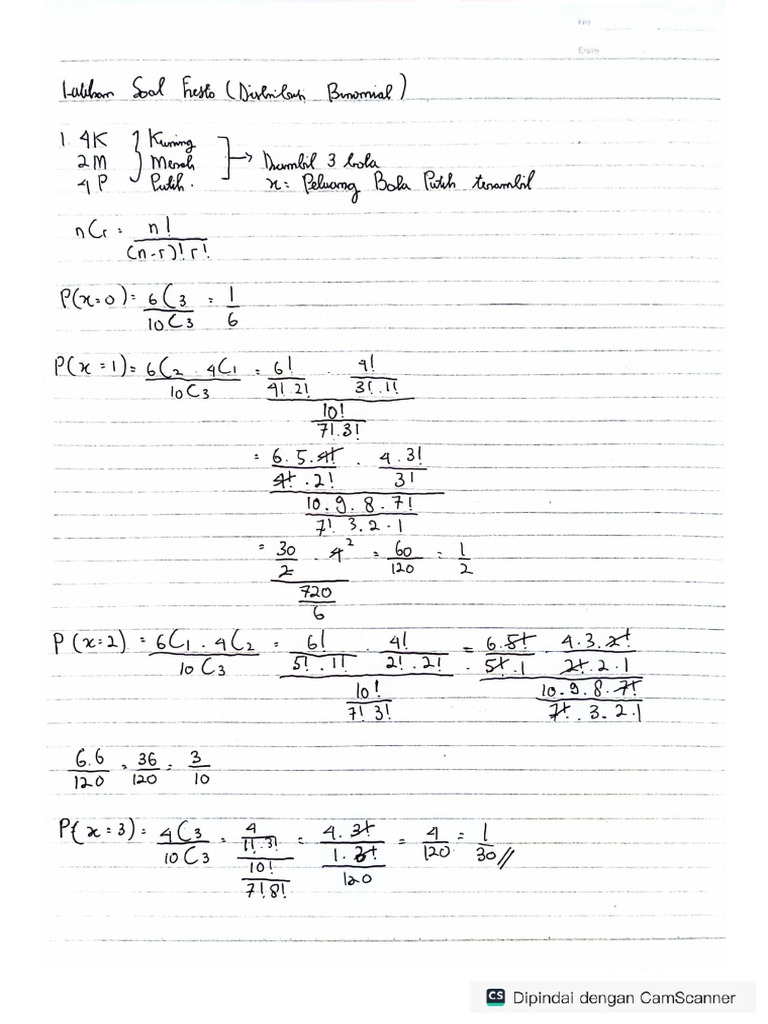 NO
Date
Latihan Soal Fresto (Distribusi Binomial)
1. 4K } Kuning
2M } Merah → Diambil 3 bola
4P } Putih. x: Peluang Bola Putih terambil
nCr = n! / (n-r)! r!
P(x=0) = 6C3 / 10C3 = 1/6
P(x=1) = 6C2 . 4C1 / 10C3 = 6!/4!.2! . 4!/3!.1! / 10!/7!.3!
= 6.5.4!/4!.2! . 4.3!/3! / 10.9.8.7!/7!.3.2.1
= 30/2 . 4² / 720/6 = 60/120 = 1/2
P(x=2) = 6C1 . 4C2 / 10C3 = 6!/5!.1! . 4!/2!.2! / 10!/7!3! = 6.5!/5!.1 . 4.3.2!/2!.2.1 / 10.9.8.7!/7!.3.2.1
6.6/120 = 36/120 = 3/10
P(x=3) = 4C3 / 10C3 = 4/1!.3! / 10!/7!8! = 4.3!/1.3! / 120 = 4/120 = 1/30 //
CS Dipindai dengan CamScanner